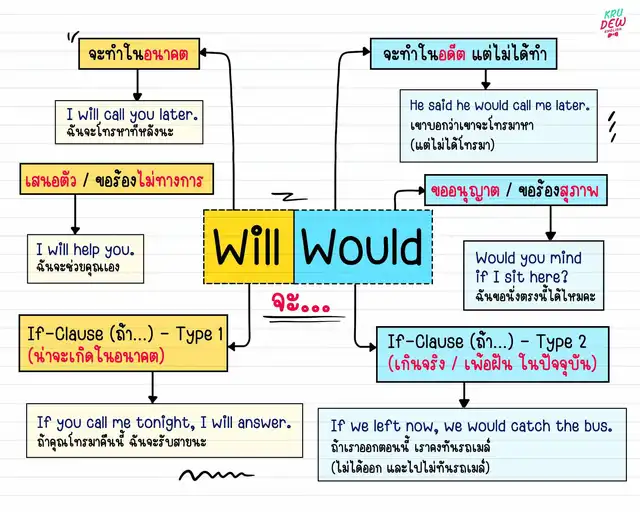 KRU
DEW
ENGLISH
จะทำในอนาคต
I will call you later.
ฉันจะโทรหาทีหลังนะ
เสนอตัว / ขอร้องไม่ทางการ
I will help you.
ฉันจะช่วยคุณเอง
If-Clause (ถ้า...) - Type 1
(น่าจะเกิดในอนาคต)
If you call me tonight, I will answer.
ถ้าคุณโทรมาคืนนี้ ฉันจะรับสายนะ
Will
Would
จะ...
จะทำในอดีต แต่ไม่ได้ทำ
He said he would call me later.
เขาบอกว่าเขาจะโทรมาหา
(แต่ไม่ได้โทรมา)
ขออนุญาต / ขอร้องสุภาพ
Would you mind
if I sit here?
ฉันขอนั่งตรงนี้ได้ไหมคะ
If-Clause (ถ้า...) - Type 2
(เกินจริง / เพ้อฝัน ในปัจจุบัน)
If we left now, we would catch the bus.
ถ้าเราออกตอนนี้ เราคงทันรถเมล์
(ไม่ได้ออก และไปไม่ทันรถเมล์)